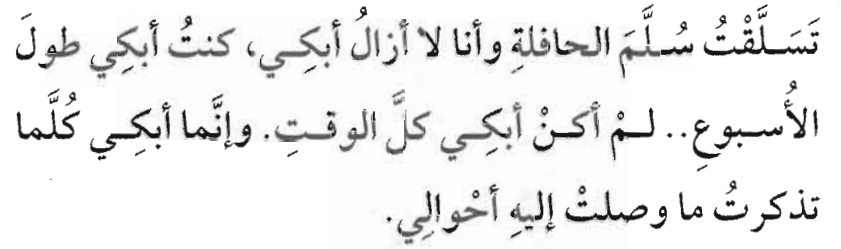 تَسَلَّقْتُ سُلَّمَ الحافلةِ وأنا لا أزالُ أبكِي، كنتُ أبكِي طولَ
الأُسبوعِ.. لمْ أكنْ أبكِي كلَّ الوقتِ. وإنَّما أبكِي كُلَّما
تذكرتُ ما وصلتْ إليهِ أحْوالِي.